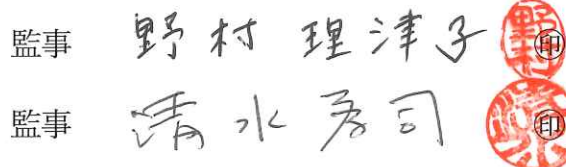 監事 野村 理津子 ㊞
監事 清水 秀司 ㊞